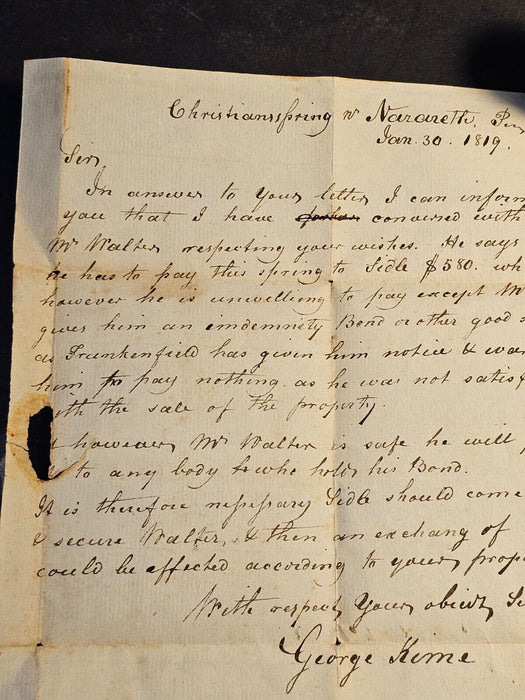 Christiansspring nr Nazareth. Pen
Jan. 30. 1819.
Sir,
In answer to your letter I can inform
you that I have conversed with
Mr Walter respecting your wishes. He says
he has to pay this spring to Sidle $580. wh
however he is unwilling to pay except Mr
gives him an imdemnity Bond or other good s
as Frankenfield has given him notice & war
him to pay nothing as he was not satisf
with the sale of the property.
however, Mr Walter is safe he will
to any body who holds his Bond.
It is therefore nessessary Sidle should come
& secure Walter, & then an exchange of
could be affected according to your prop
With respect, Your obidt, Se
George Kime